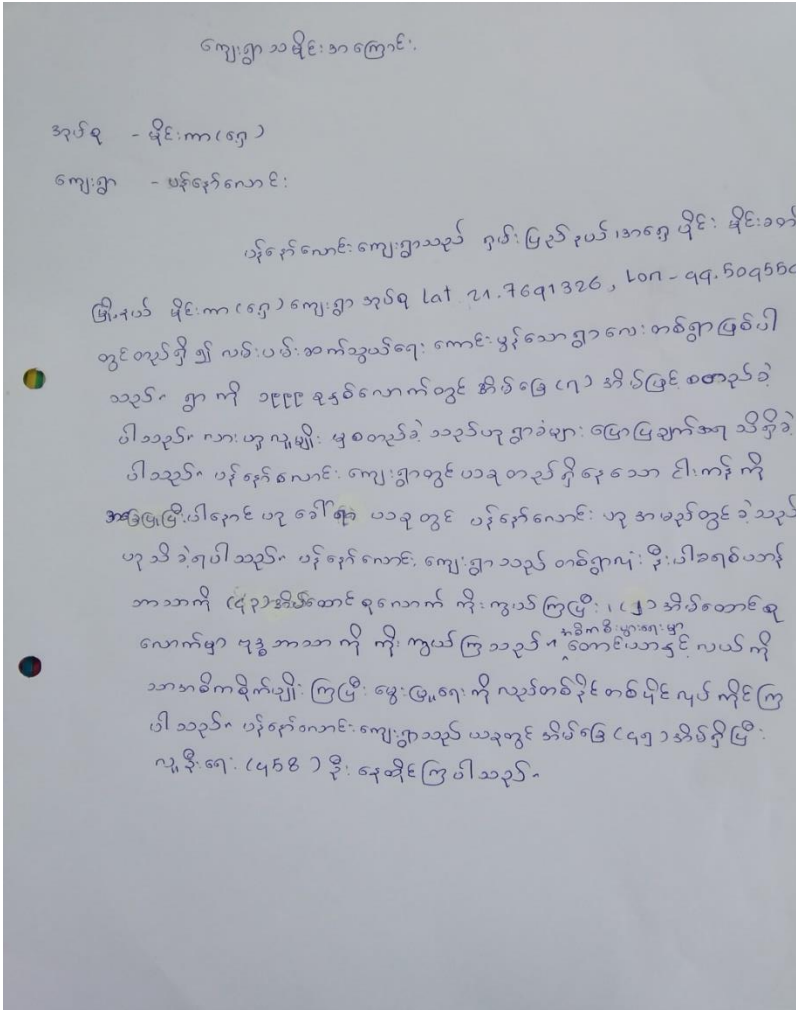 ကျေးရွာသမိုင်းအကြောင်း
အုပ်စု - မိုင်းကာ(ရှေ့)
ကျေးရွာ - ပန်နော်လောင်း
ပန်နော်လောင်းကျေးရွာသည် ရှမ်းပြည်နယ်၊အရှေ့ပိုင်း မိုင်းခတ်
မြို့နယ် မိုင်းကာ(ရှေ့)ကျေးရွာအုပ်စု Lat 21.7691326, Lon-99.509550
တွင်တည်ရှိ၍ လမ်းပမ်းဆက်သွယ်ရေး ကောင်းမွန်သောရွာလေးတစ်ရွာဖြစ်ပါ
သည်။ ရွာကို ၁၉၉၉ ခုနှစ်လောက်တွင် အိမ်ခြေ(၇)အိမ်ဖြင့် စတည်ခဲ့
ပါသည်။ လားဟူလူမျိုး မှစတည်ခဲ့သည်ဟု ရွာခံများ ပြောပြချက်အရ သိရှိခဲ့
ပါသည်။ ပန်နော်လောင်း ကျေးရွာတွင်ယခုတည်ရှိနေသော ငါးကန်ကို
အခြေပြုပြီးပါနောင်ဟု ခေါ်ရာ ယခုတွင် ပန်နော်လောင်း ဟုအမည်တွင်ခဲ့သည်
ဟုသိခဲ့ရပါသည်။ ပန်နော်လောင်းကျေးရွာသည် တစ်ရွာလုံးနီးပါးခရစ်ယာန်
ဘာသာကို (၄၃)အိမ်ထောင်စုလောက် ကိုးကွယ်ကြပြီး၊ (၂)အိမ်ထောင်စု
လောက်မှာ ဗုဒ္ဓဘာသာကို ကိုးကွယ်ကြသည်။ အဓိကစီးပွားရေးမှာ တောင်ယာနှင့် လယ်ကို
သာအဓိကစိုက်ပျိုးကြပြီး မွေးမြူရေးကိုလည်းတစ်နိုင်တစ်ပိုင်လုပ်ကိုင်ကြ
ပါသည်။ ပန်နော်လောင်းကျေးရွာသည် ယခုတွင် အိမ်ခြေ(၄၅)အိမ်ရှိပြီး
လူဦးရေ (၄58)ဦး နေထိုင်ကြပါသည်။